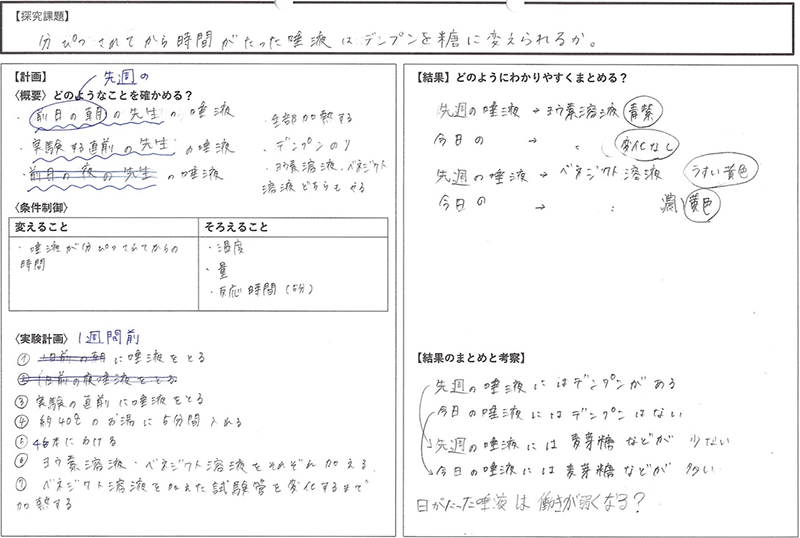 【探究課題】
分ぴつされてから時間がたった唾液はデンプンを糖に変えられるか。
【計画】
先週の
〈概要〉どのようなことを確かめる?
・前日の朝の先生の唾液
・実験する直前の先生の唾液
・前日の夜の先生の唾液
・全部加熱する
・デンプンのり
・ヨウ素溶液、ベネジクト
溶液どちらもやる
〈条件制御〉
変えること
・唾液が分ぴつされてからの
時間
そろえること
・温度
・量
・反応時間(5分)
〈実験計画〉
1週間前
① 1日前の朝に唾液をとる
② 1日前の夜唾液をとる
③ 実験の直前に唾液をとる
④ 約40℃のお湯に5分間入れる
⑤ 4本に分ける
⑥ ヨウ素溶液・ベネジクト溶液をそれぞれ加える
⑦ ベネジクト溶液を加えた試験管を変化するまで
加熱する
【結果】どのようにわかりやすくまとめる?
先週の唾液→ヨウ素溶液 青紫
今日の → 〃 変化なし
先週の唾液→ベネジクト溶液 うすい黄色
今日の → : 濃い黄色
【結果のまとめと考察】
先週の唾液にはデンプンがある
今日の唾液にはデンプンはない
先週の唾液には麦芽糖などが少ない
今日の唾液には麦芽糖などが多い
日がたった唾液は働きが弱くなる?